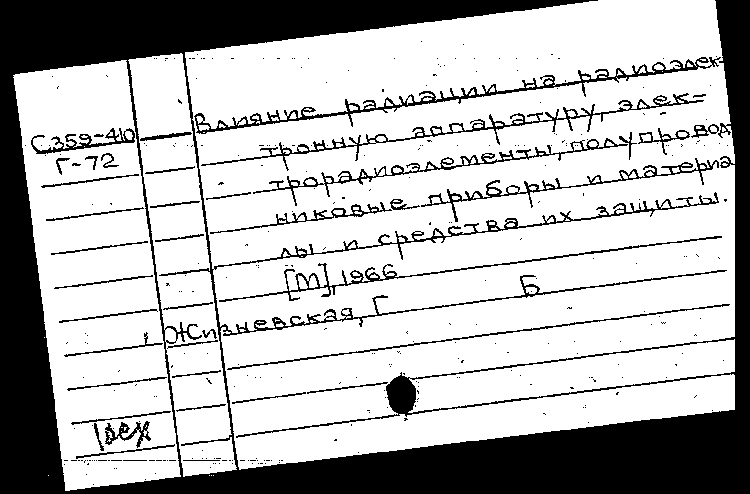 С359-410
Г-72
Влияние радиации на радиоэлек-
тронную аппаратуру, элек-
трорадиоэлементы, полупровод
никовые приборы и материа
лы и средства их защиты.
[М], 1966
Жизневская, Г Б